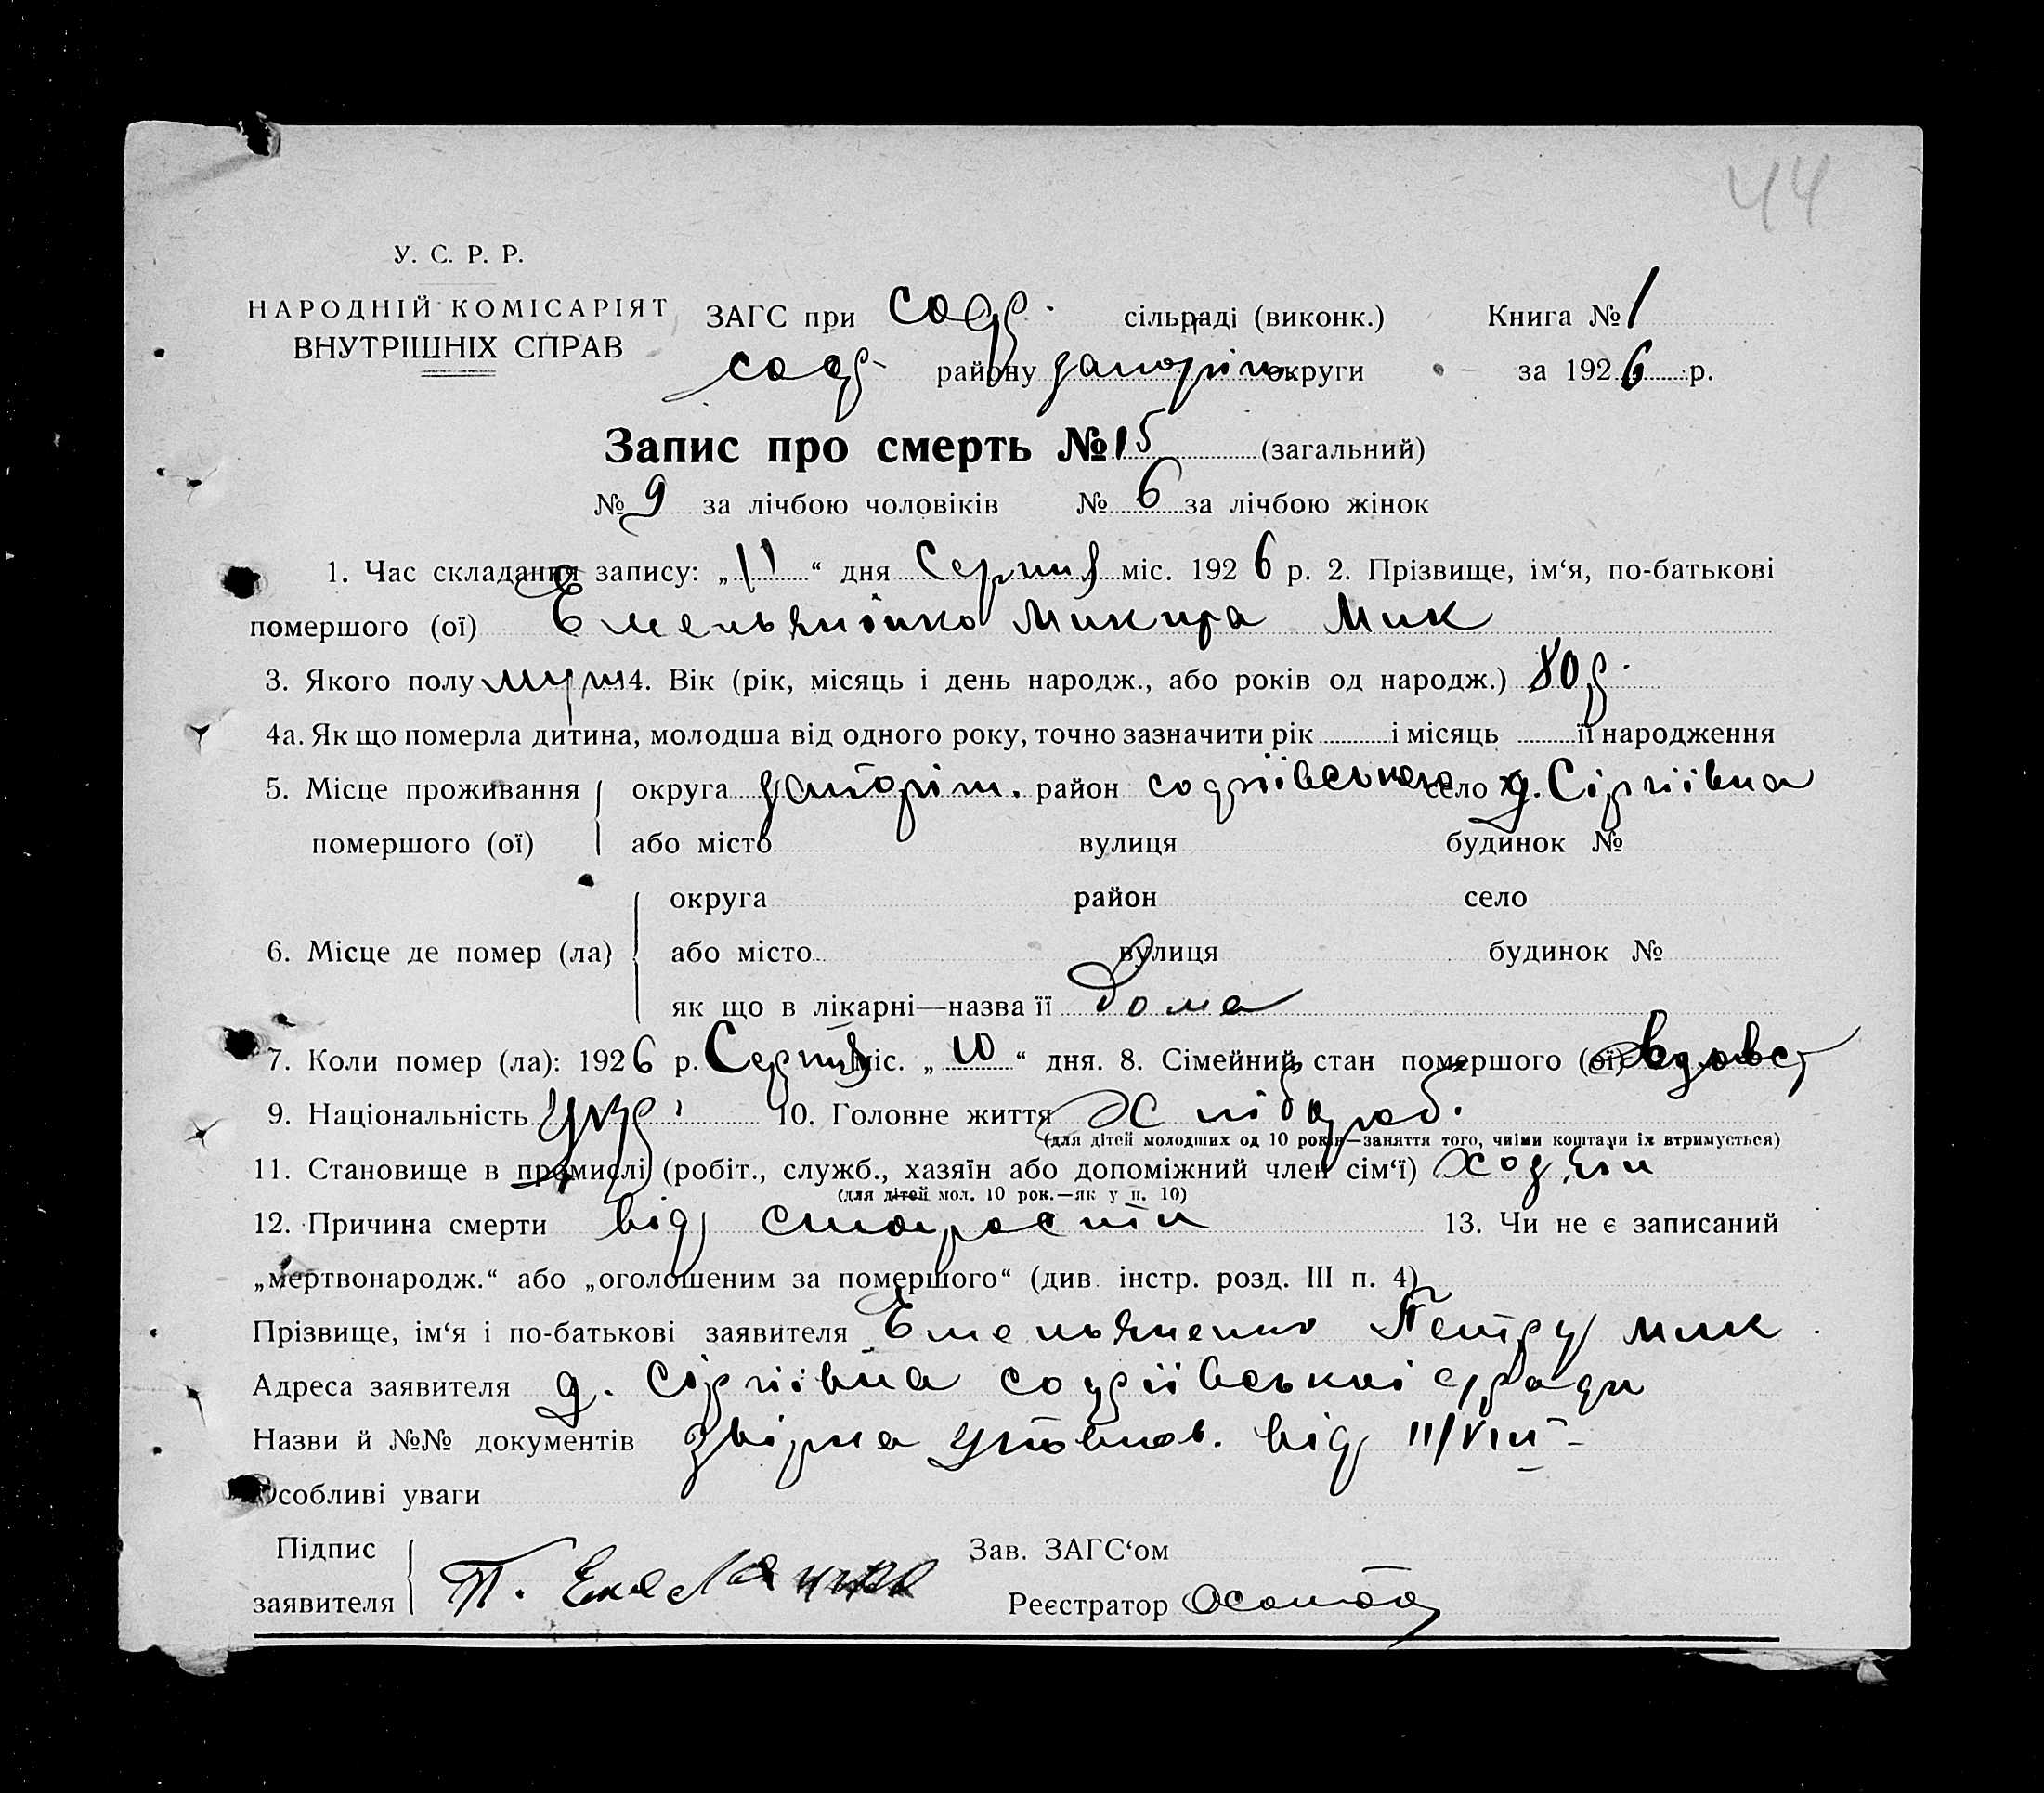 44
У. С. Р. Р.
НАРОДНІЙ КОМІСАРІЯТ
ВНУТРІШНІХ СПРАВ
ЗАГС при Соф. сільраді (виконк.) Книга № 1
соф. району запоріж. округи за 1926 р.
Запис про смерть № 15 (загальний)
№ 9 за лічбою чоловіків № 6 за лічбою жінок
1. Час складання запису: „11“ дня Серпня міс. 1926 р. 2. Прізвище, ім‘я, по-батькові
помершого (ої) Емельяненко Микита Мик
3. Якого полу 4. Вік (рік, місяць і день народж., або років од народж.) 80 р.
4а. Як що померла дитина, молодша від одного року, точно зазначити рік і місяць її народження
5. Місце проживання помершого (ої) округа запоріж. район софіївського село д. Сергіївна
або місто вулиця будинок №
6. Місце де помер (ла) округа район село
або місто вулиця будинок №
як що в лікарні—назва її Дома
7. Коли помер (ла): 1926 р. Серпня міс. „10“ дня. 8. Сімейний стан помершого (ої) вдовец
9. Національність укр. 10. Головне життя
(для дітей молодших од 10 років—заняття того, чиїми коштами їх втримується)
11. Становище в промислі (робіт., служб., хазяїн або допоміжний член сім‘ї)
(для дітей мол. 10 рок.—як у п. 10)
12. Причина смерти від старости 13. Чи не є записаний
„мертвонародж.“ або „оголошеним за помершого“ (див. інстр. розд. III п. 4)
Прізвище, ім‘я і по-батькові заявителя Емельяненко Петру мик
Адреса заявителя д. Сергіївна софіївської с/ради
Назви й №№ документів від 11/VIII
Особливі уваги
Підпис заявителя П. Зав. ЗАГС‘ом
Реєстратор